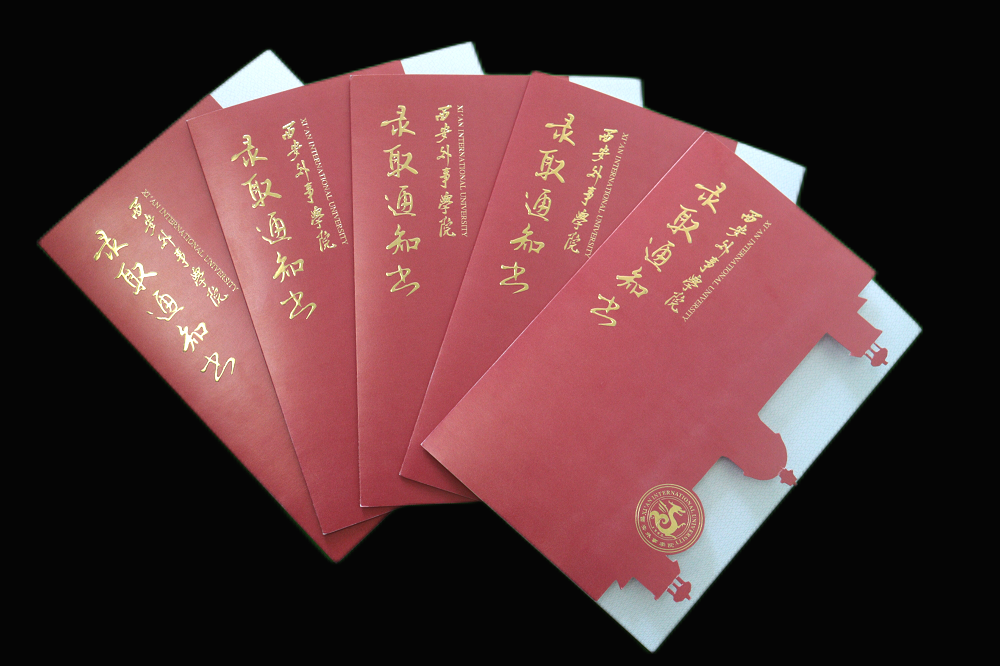 录取通知书
西安外事学院
XI'AN INTERNATIONAL UNIVERSITY
录取通知书
西安外事学院
XI'AN INTERNATIONAL UNIVERSITY
录取通知书
西安外事学院
XI'AN INTERNATIONAL UNIVERSITY
录取通知书
西安外事学院
XI'AN INTERNATIONAL UNIVERSITY
录取通知书
西安外事学院
XI'AN INTERNATIONAL UNIVERSITY
XI'AN INTERNATIONAL UNIVERSITY
西安外事学院